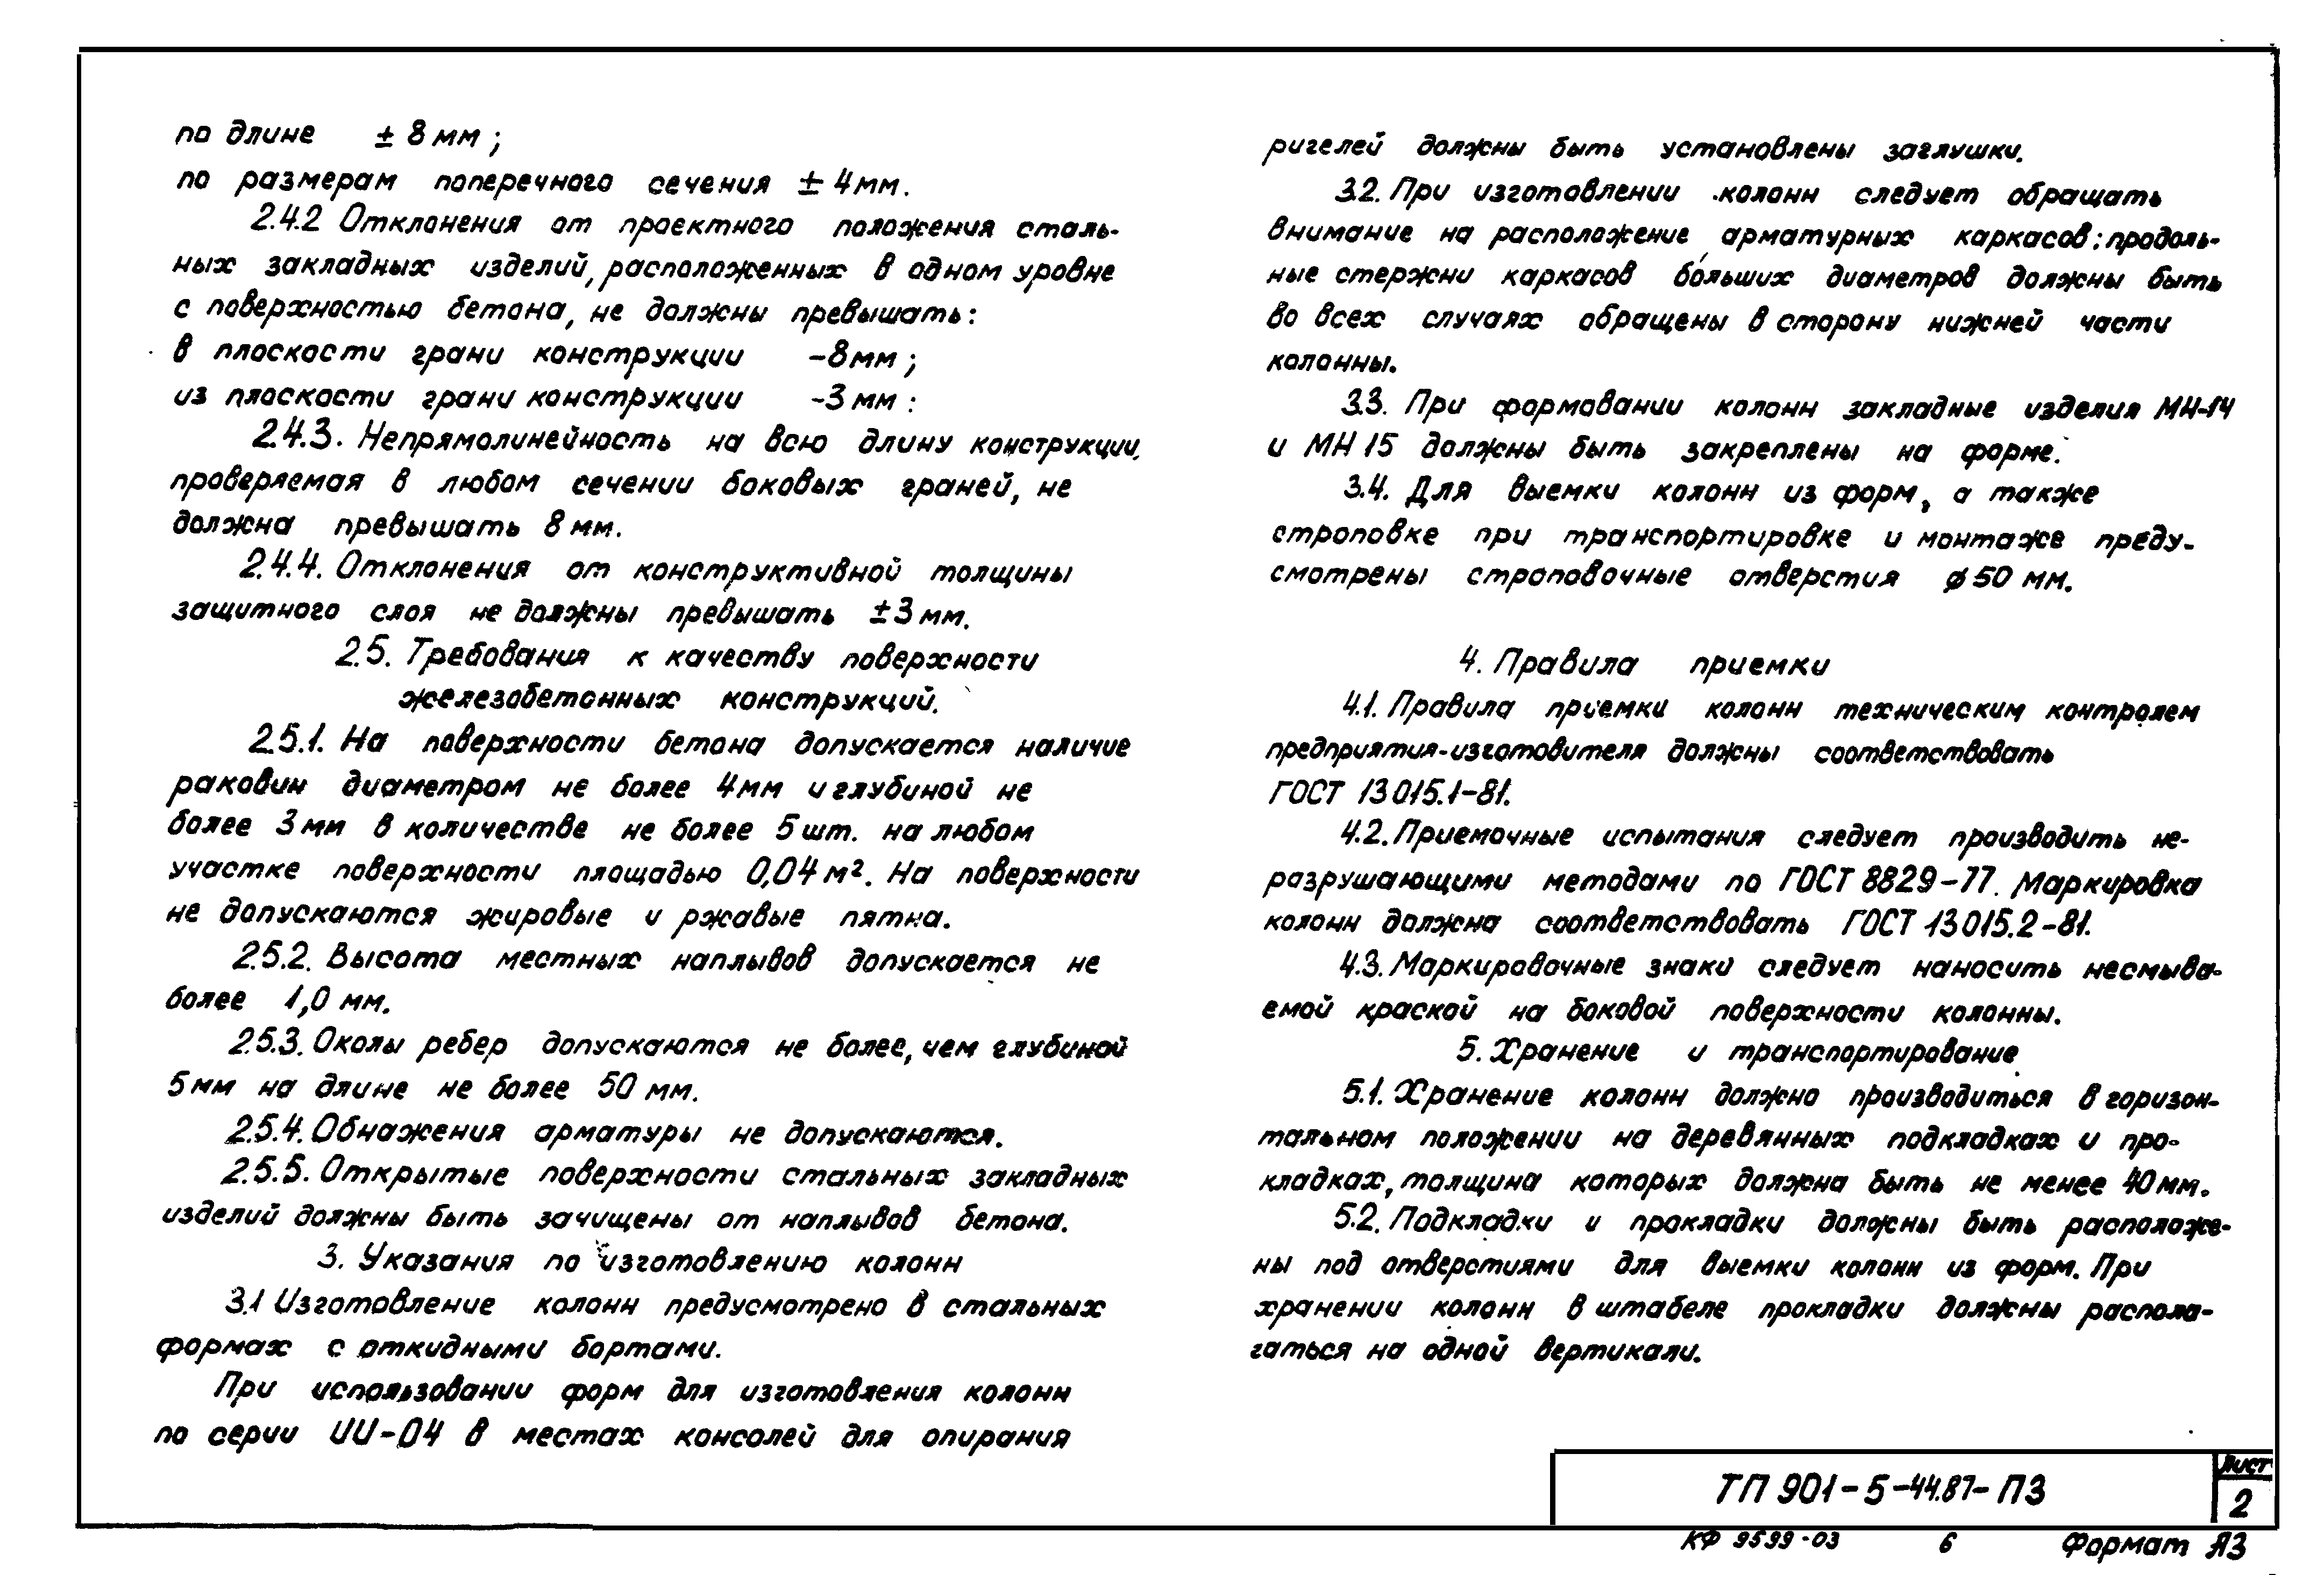 по длине ± 8 мм;
по размерам поперечного сечения ± 4 мм.
2.4.2 Отклонения от проектного положения сталь-
ных закладных изделий, расположенных в одном уровне
с поверхностью бетона, не должны превышать:
в плоскости грани конструкции -8 мм;
из плоскости грани конструкции -3 мм:
2.4.3. Непрямолинейность на всю длину конструкции,
проверяемая в любом сечении боковых граней, не
должна превышать 8 мм.
2.4.4. Отклонения от конструктивной толщины
защитного слоя не должны превышать ±3 мм.
2.5. Требования к качеству поверхности
железобетонных конструкций.
2.5.1. На поверхности бетона допускается наличие
раковин диаметром не более 4 мм и глубиной не
более 3 мм в количестве не более 5 шт. на любом
участке поверхности площадью 0,04 м². На поверхности
не допускаются жировые и ржавые пятна.
2.5.2. Высота местных наплывов допускается не
более 1,0 мм.
2.5.3. Околы ребер допускаются не более, чем глубиной
5 мм на длине не более 50 мм.
2.5.4. Обнажения арматуры не допускаются.
2.5.5. Открытые поверхности стальных закладных
изделий должны быть зачищены от наплывов бетона.
3. Указания по изготовлению колонн
3.1 Изготовление колонн предусмотрено в стальных
формах с откидными бортами.
При использовании форм для изготовления колонн
по серии ИИ-04 в местах консолей для опирания
ригелей должны быть установлены заглушки.
3.2. При изготовлении колонн следует обращать
внимание на расположение арматурных каркасов: продоль-
ные стержни каркасов бо́льших диаметров должны быть
во всех случаях обращены в сторону нижней части
колонны.
3.3. При формовании колонн закладные изделия МН-14
и МН 15 должны быть закреплены на форме.
3.4. Для выемки колонн из форм, а также
строповке при транспортировке и монтаже преду-
смотрены строповочные отверстия ø 50 мм.
4. Правила приемки
4.1. Правила приемки колонн техническим контролем
предприятия-изготовителя должны соответствовать
ГОСТ 13015.1-81.
4.2. Приемочные испытания следует производить не-
разрушающими методами по ГОСТ 8829-77. Маркировка
колонн должна соответствовать ГОСТ 13015.2-81.
4.3. Маркировочные знаки следует наносить несмыва-
емой краской на боковой поверхности колонны.
5. Хранение и транспортирование.
5.1. Хранение колонн должно производиться в горизон-
тальном положении на деревянных подкладках и про-
кладках, толщина которых должна быть не менее 40 мм.
5.2. Подкладки и прокладки должны быть расположе-
ны под отверстиями для выемки колонн из форм. При
хранении колонн в штабеле прокладки должны распола-
гаться на одной вертикали.
ТП 901-5-44.87-ПЗ
Лист
2
КФ 9599-03 6 Формат А3